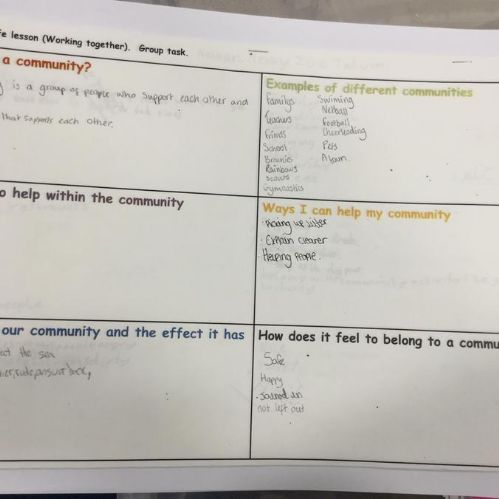 fe lesson (Working together). Group task.
a community?
is a group of people who support each other and
that supports each other.
Examples of different communities
Family
Teachers
Frinds
School
Brownies
Rainbows
Scouts
Gymnastics
Swiming
Netball
Football
Cheerleading
Pets
o help within the community
Ways I can help my community
· Picking up litter
· Explain clearer
· Helping People.
our community and the effect it has
ect the sea
How does it feel to belong to a commu
Safe
Happy
· Joined in
not left out